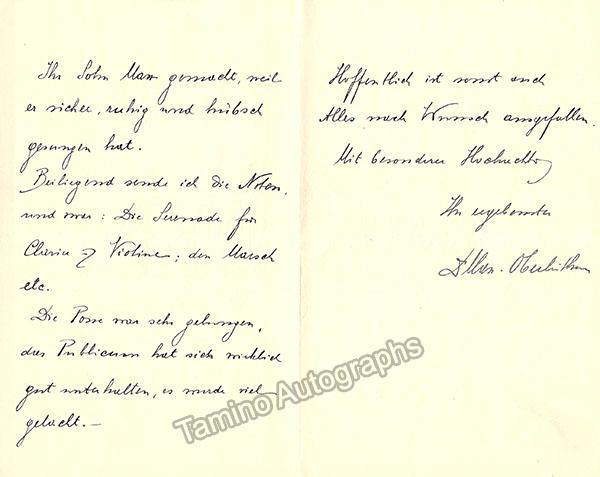 Ihr Sohn Max gemacht, weil
er sicher, ruhig und hübsch
gesungen hat.
Beiliegend sende ich die Noten,
und zwar: Die Serenade für
Clavier & Violine; den Marsch
etc.
Die Posse war sehr gelungen,
das Publicum hat sich wirklich
gut unterhalten, es wurde viel
gelacht. —
Hoffentlich ist sonst auch
Alles nach Wunsch ausgefallen.
Mit besonderer Hochachtg
Ihr ergebenster
Tamino Autographs